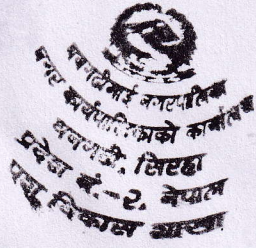 नगर कार्यपालिकाको कार्यालय
धनगढी, सिरहा
प्रदेश नं.-२, नेपाल
पशु विकास शाखा